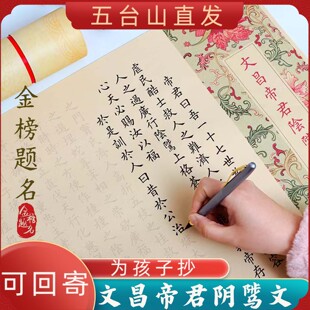 五台山直发
金榜题名
金榜题名
文昌帝君陰騭
帝君曰吾一十七世
虐民酷
人之過廣行陰騭上格蒼
心天必賜汝以福
於是訓於人曰昔於公治
为孩子抄
可回寄
文昌帝君阴骘文